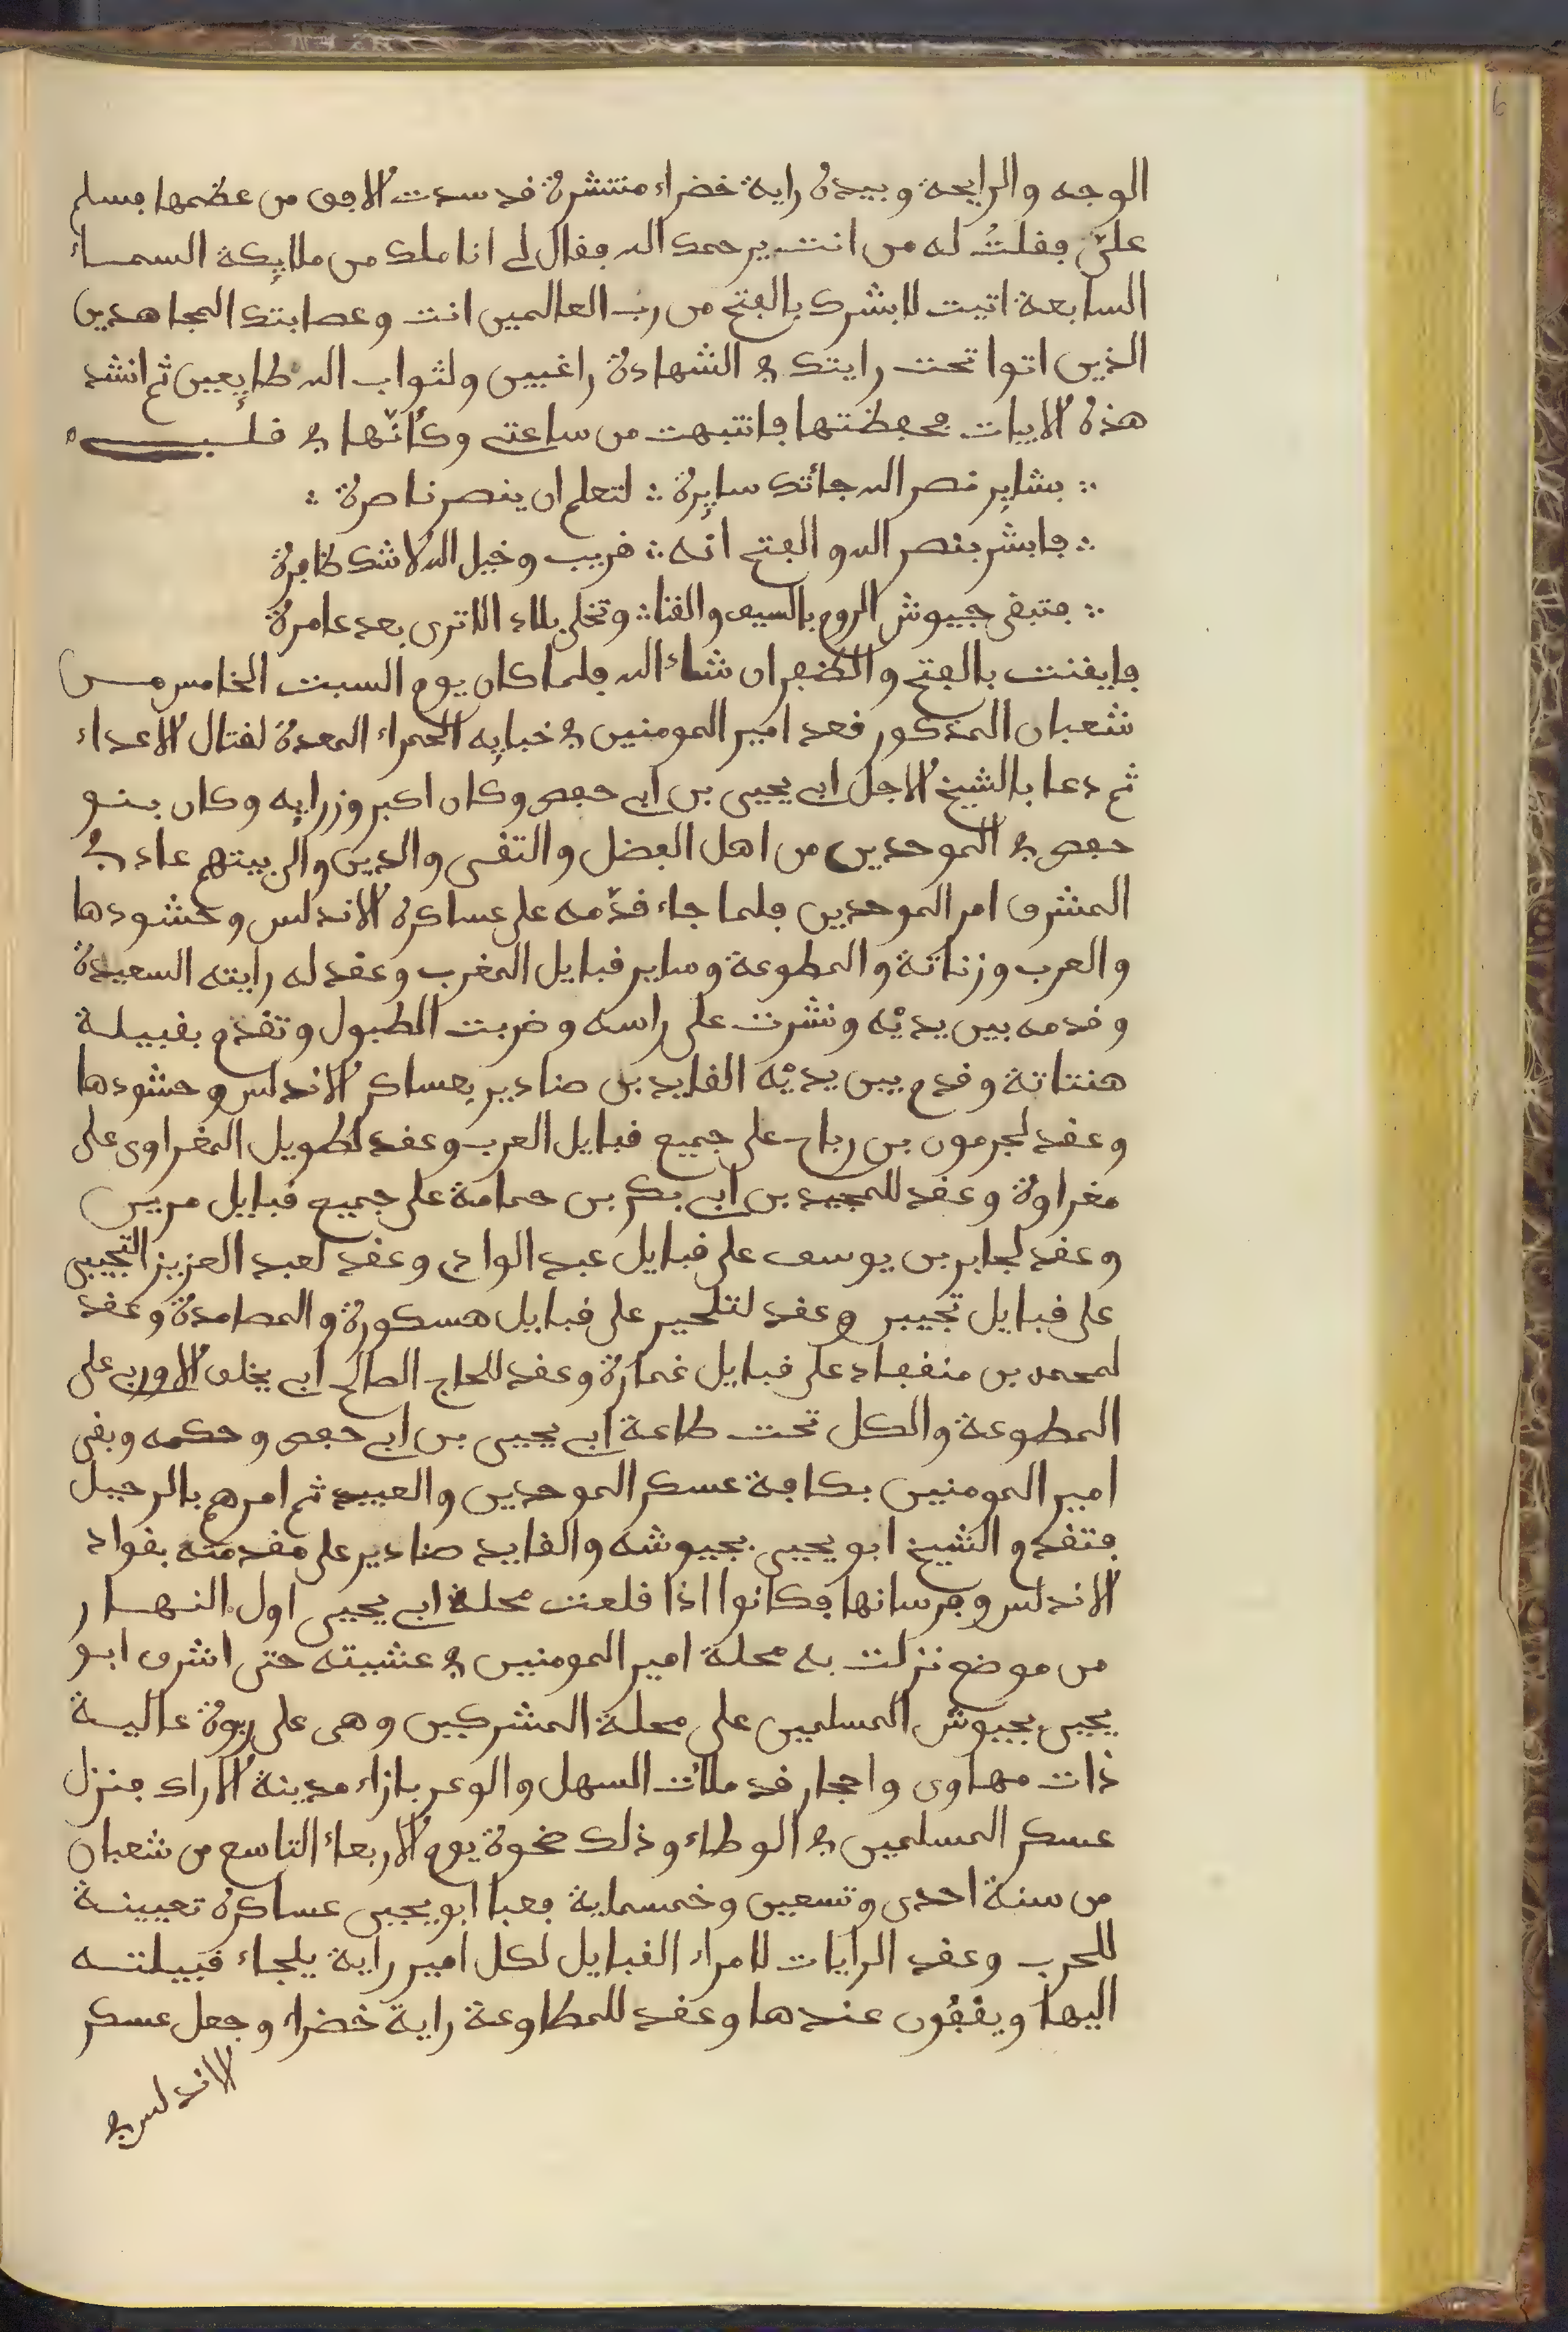 الوجه والرايحة وبيده راية خضراء منتشرة قد سدت الافق من عظمها فسلم
علىّ فقلتُ له من انت يرحمك الله فقال لى انا ملك من ملايكة السماء
السابعة اتيت لابشرك بالفتح من رب العالمين انت وعصابتك المجاهدين
الذين اتوا تحت رايتك في الشهادة راغبين ولثواب الله طايعين ثم انشد
هذه الابيات فحفظتها فانتبهت من ساعتى وكأنّها في قلبى
∴ بشاير نصر الله جائتك سايرة ∴ لتعلم ان ينصر ناصرة ∴
∴ فابشر بنصر الله والفتح انه ∴ قريب وخيل الله لا شك ظافرة
∴ فتبقى جييوش الروم بالسيف والقنا ∴ وتخلى بلاد الا ترى بعد عامرة
فايقنت بالفتح والظفر ان شاء الله فلما كان يوم السبت الخامس من
شعبان المذكور قعد امير المومنين في خبايه الحمراء المعدة لقتال الاعداء
ثم دعا بالشيخ الاجل ابى يحيى بن ابى حفص وكان اكبر وزرايه وكان بنو
حفص في الموحدين من اهل الفضل والتقى والدين والى بيتهم عاد في
المشرق امر الموحدين فلما جاء قدّمه على عساكره الاندلس وحشودها
والعرب وزناتة والمطوعة وساير قبايل المغرب وعقد له رايته السعيدة
وقدمه بين يديْه ونشرت على راسه وضربت الطبول وتقدم بقبيلة
هنتاتة وقدم بين يديْه القايد بن صنادير بعساكر الاندلس وحشودها
وعقد لجرمون بن رباح على جميع قبايل العرب وعقد لطويل المغراوى على
مغراوة وعقد للمجيد بن ابى بكر بن حمامة على جميع قبايل مرين
وعقد لجابر بن يوسف على قبايل عبد الواد وعقد لعبد العزيز التجيبى
على قبايل تجيبر وعقد لتلجير على قبايل هسكورة والمصامدة وعقد
لمحمد بن منقفاد على قبايل غمارة وعقد للحاج الصالح ابى يخلف الاوربى على
المطوعة والكل تحت طاعة ابى يحيى بن ابى حفص وحكمه وبقى
امير المومنين بكافة عسكر الموحدين والعبيد ثم امرهم بالرحيل
فتقدم الشيخ ابو يحيى بجيوشه والقايد صنادير على مقدمته بقواد
الاندلس وفرسانها فكانوا اذا قلعت محلة ابى يحيى اول النهار
من موضع نزلت به محلة امير المومنين في عشيته حتى اشرف ابو
يحيى بجيوش المسلمين على محلة المشركين وهى على ربوة عالية
ذات مهاوى واحجار قد ملات السهل والوعر بازاء مدينة الاراك فنزل
عسكر المسلمين في الوطاء وذلك ضحوة يوم الاربعاء التاسع من شعبان
من سنة احدى وتسعين وخمسماية فعبا ابو يحيى عساكره تعيينة
للحرب وعقد الرايات لامراء القبايل لكل امير راية يلجاء قبيلته
اليها ويقفُون عندها وعقد للمطاوعة راية خضراء وجعل عسكر
الاندلس في